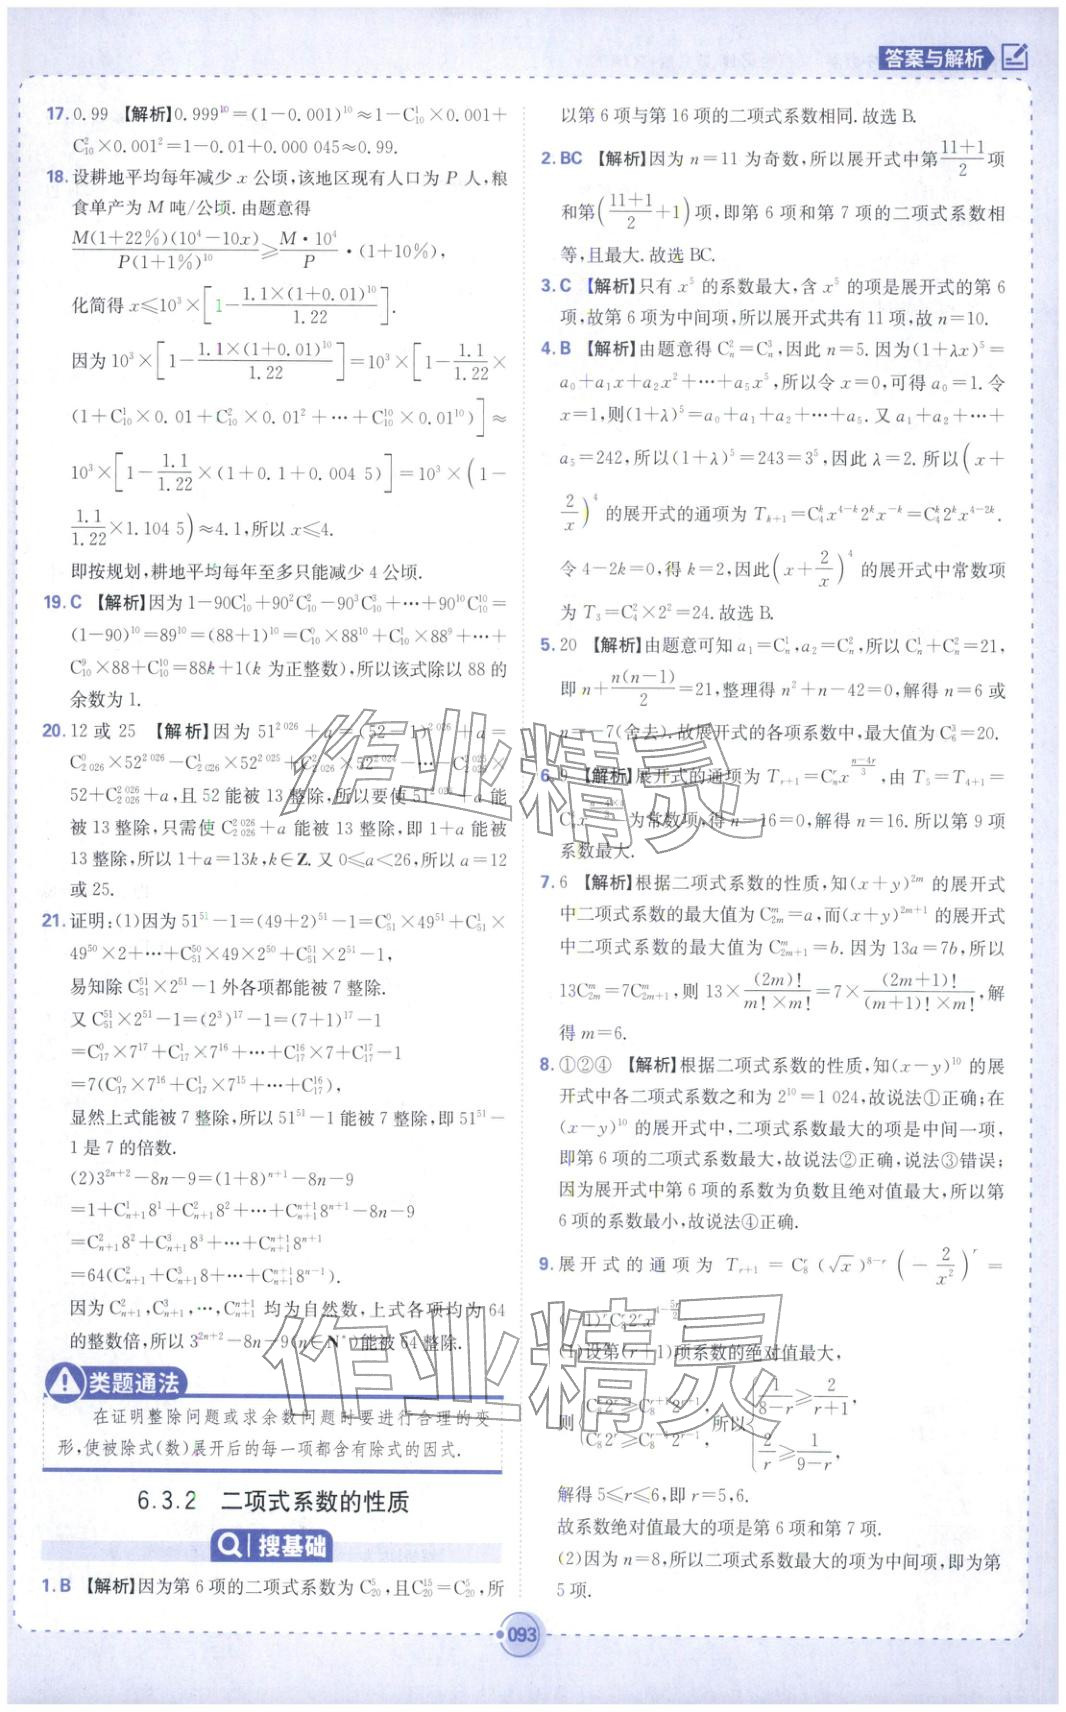 答案与解析
17. 0.99 【解析】0.999¹⁰=(1-0.001)¹⁰≈1-C₁₀¹×0.001+
C₁₀²×0.001²=1-0.01+0.000 045≈0.99.
18. 设耕地平均每年减少 x 公顷,该地区现有人口为 P 人,粮
食单产为 M 吨/公顷.由题意得
M(1+22%)(10⁴-10x)/P(1+1%)¹⁰≥M·10⁴/P·(1+10%),
化简得 x≤10³×[1-1.1×(1+0.01)¹⁰/1.22].
因为 10³×[1-1.1×(1+0.01)¹⁰/1.22]=10³×[1-1.1/1.22×
(1+C₁₀¹×0.01+C₁₀²×0.01²+…+C₁₀¹⁰×0.01¹⁰)]≈
10³×[1-1.1/1.22×(1+0.1+0.004 5)]=10³×(1-
1.1/1.22×1.104 5)≈4.1,所以 x≤4.
即按规划,耕地平均每年至多只能减少 4 公顷.
19. C 【解析】因为 1-90C₁₀¹+90²C₁₀²-90³C₁₀³+…+90¹⁰C₁₀¹⁰=
(1-90)¹⁰=89¹⁰=(88+1)¹⁰=C₁₀⁰×88¹⁰+C₁₀¹×88⁹+…+
C₁₀⁹×88+C₁₀¹⁰=88k+1(k 为正整数),所以该式除以 88 的
余数为 1.
20. 12 或 25 【解析】因为 51²⁰²⁶+a=(52-1)²⁰²⁶+a=
C₂₀₂₆⁰×52²⁰²⁶-C₂₀₂₆¹×52²⁰²⁵+C₂₀₂₆²×52²⁰²⁴-…-C₂₀₂₆²⁰²⁵×
52+C₂₀₂₆²⁰²⁶+a,且 52 能被 13 整除,所以要使 51²⁰²⁶+a 能
被 13 整除,只需使 C₂₀₂₆²⁰²⁶+a 能被 13 整除,即 1+a 能被
13 整除,所以 1+a=13k,k∈Z.又 0≤a<26,所以 a=12
或 25.
21. 证明:(1)因为 51⁵¹-1=(49+2)⁵¹-1=C₅₁⁰×49⁵¹+C₅₁¹×
49⁵⁰×2+…+C₅₁⁵⁰×49×2⁵⁰+C₅₁⁵¹×2⁵¹-1,
易知除 C₅₁⁵¹×2⁵¹-1 外各项都能被 7 整除.
又 C₅₁⁵¹×2⁵¹-1=(2³)¹⁷-1=(7+1)¹⁷-1
=C₁₇⁰×7¹⁷+C₁₇¹×7¹⁶+…+C₁₇¹⁶×7+C₁₇¹⁷-1
=7(C₁₇⁰×7¹⁶+C₁₇¹×7¹⁵+…+C₁₇¹⁶),
显然上式能被 7 整除,所以 51⁵¹-1 能被 7 整除,即 51⁵¹-
1 是 7 的倍数.
(2)3²ⁿ⁺²-8n-9=(1+8)ⁿ⁺¹-8n-9
=1+Cₙ₊₁¹8¹+Cₙ₊₁²8²+…+Cₙ₊₁ⁿ⁺¹8ⁿ⁺¹-8n-9
=Cₙ₊₁²8²+Cₙ₊₁³8³+…+Cₙ₊₁ⁿ⁺¹8ⁿ⁺¹
=64(Cₙ₊₁²+Cₙ₊₁³8+…+Cₙ₊₁ⁿ⁺¹8ⁿ⁻¹).
因为 Cₙ₊₁²,Cₙ₊₁³,…,Cₙ₊₁ⁿ⁺¹ 均为自然数,上式各项均为 64
的整数倍,所以 3²ⁿ⁺²-8n-9(n∈N*)能被 64 整除.
类题通法
在证明整除问题或求余数问题时要进行合理的变
形,使被除式(数)展开后的每一项都含有除式的因式.
6.3.2 二项式系数的性质
搜基础
1. B 【解析】因为第 6 项的二项式系数为 C₂₀⁵,且C₂₀¹⁵=C₂₀⁵,所
以第 6 项与第 16 项的二项式系数相同.故选 B.
2. BC 【解析】因为 n=11 为奇数,所以展开式中第(11+1)/2项
和第((11+1)/2+1)项,即第 6 项和第 7 项的二项式系数相
等,且最大.故选 BC.
3. C 【解析】只有 x⁵ 的系数最大,含 x⁵ 的项是展开式的第 6
项,故第 6 项为中间项,所以展开式共有 11 项,故 n=10.
4. B 【解析】由题意得 Cₙ²=Cₙ³,因此 n=5.因为(1+λx)⁵=
a₀+a₁x+a₂x²+…+a₅x⁵,所以令 x=0,可得 a₀=1.令
x=1,则(1+λ)⁵=a₀+a₁+a₂+…+a₅.又 a₁+a₂+…+
a₅=242,所以(1+λ)⁵=243=3⁵,因此 λ=2.所以(x+
2/x)⁴ 的展开式的通项为 Tₖ₊₁=C₄ᵏx⁴⁻ᵏ2ᵏx⁻ᵏ=C₄ᵏ2ᵏx⁴⁻²ᵏ.
令 4-2k=0,得 k=2,因此(x+2/x)⁴ 的展开式中常数项
为 T₃=C₄²×2²=24.故选 B.
5. 20 【解析】由题意可知 a₁=Cₙ¹,a₂=Cₙ²,所以 Cₙ¹+Cₙ²=21,
即 n+n(n-1)/2=21,整理得 n²+n-42=0,解得 n=6 或
n=-7(舍去).故展开式的各项系数中,最大值为 C₆³=20.
6. 9 【解析】展开式的通项为 Tᵣ₊₁=Cₙʳx^((n-4r)/3),由 T₅=T₄₊₁=
为常数项,得 n-16=0,解得 n=16.所以第 9 项
系数最大.
7. 6 【解析】根据二项式系数的性质,知(x+y)²ᵐ 的展开式
中二项式系数的最大值为 C₂ₘᵐ=a,而(x+y)²ᵐ⁺¹ 的展开式
中二项式系数的最大值为 C₂ₘ₊₁ᵐ=b.因为 13a=7b,所以
13C₂ₘᵐ=7C₂ₘ₊₁ᵐ,则 13×(2m)!/(m!×m!)=7×(2m+1)!/((m+1)!×m!),解
得 m=6.
8. ①②④ 【解析】根据二项式系数的性质,知(x-y)¹⁰ 的展
开式中各二项式系数之和为 2¹⁰=1 024,故说法①正确;在
(x-y)¹⁰ 的展开式中,二项式系数最大的项是中间一项,
即第 6 项的二项式系数最大,故说法②正确,说法③错误;
因为展开式中第 6 项的系数为负数且绝对值最大,所以第
6 项的系数最小,故说法④正确.
9. 展开式的通项为 Tᵣ₊₁=C₈ʳ(√x)⁸⁻ʳ(-2/x²)ʳ=
(-1)ʳC₈ʳ2ʳx^(4-5r/2).
(1)设第(r+1)项系数的绝对值最大,
则{C₈ʳ2ʳ≥C₈ʳ⁺¹2ʳ⁺¹, C₈ʳ2ʳ≥C₈ʳ⁻¹2ʳ⁻¹, 所以{1/(8-r)≥2/(r+1), 2/r≥1/(9-r).
解得 5≤r≤6,即 r=5,6.
故系数绝对值最大的项是第 6 项和第 7 项.
(2)因为 n=8,所以二项式系数最大的项为中间项,即为第
5 项.
093
作业精灵
作业精灵